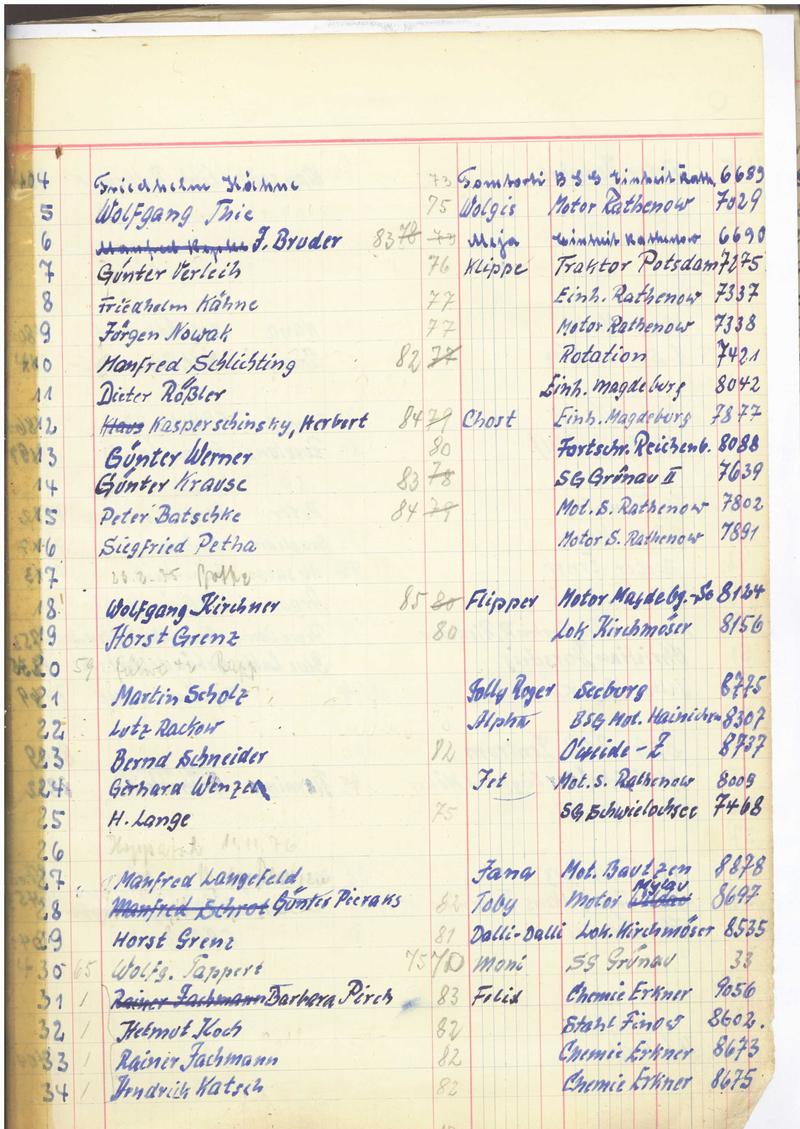 4 Friedhelm Kähne 73 BSG Einheit Rath. 6689
5 Wolfgang Thie 75 Wolgis Motor Rathenow 7029
6 J. Bruder 83 78 73 Meja Einheit Rathenow 6690
7 Günter Verleih 76 Klippe Traktor Potsdam 7275
8 Friedhelm Kähne 77 Einh. Rathenow 7337
9 Jürgen Nowak 77 Motor Rathenow 7338
10 Manfred Schlichting 82 77 Rotation 7421
11 Dieter Rößler Einh. Magdeburg 8042
12 Klaus Kasperschinsky, Herbert 84 79 Chost Einh. Magdeburg 7877
13 Günter Werner 80 Fortschr. Reichenb. 8088
14 Günter Krause 83 78 SG Grünau II 7639
15 Peter Batschke 84 79 Mot. S. Rathenow 7802
16 Siegfried Petha Motor S. Rathenow 7891
17
18 Wolfgang Kirchner 85 80 Flipper Motor Magdebg.-So 8124
19 Horst Grenz 80 Lok Kirchmöser 8156
20 59
21 Martin Scholz Jolly Roger Seeburg 8775
22 Lutz Rackow Alpha BSG Mot. Hainichen 8307
23 Bernd Schneider 82 8737
24 Gerhard Wenzel Jet Mot. S. Rathenow 8009
25 H. Lange 75 SG Schwielochsee 7468
26 11.76
27 Manfred Langefeld Jana Mot. Bautzen 8878
28 Manfred Schrot Günter Pieraks 82 Toby Motor Mylau 8697
29 Horst Grenz 81 Dalli-Dalli Lok. Kirchmöser 8535
30 65 Wolfg. Tappert 75 70 Moni SG Grünau 33
31 / Rainer Fachmann Barbara Pirch 83 Felix Chemie Erkner 9056
32 / Helmut Koch 82 Stahl Finow 8602.
33 / Rainer Fachmann 82 Chemie Erkner 8673
34 / Hendrich Katsch 82 Chemie Erkner 8675